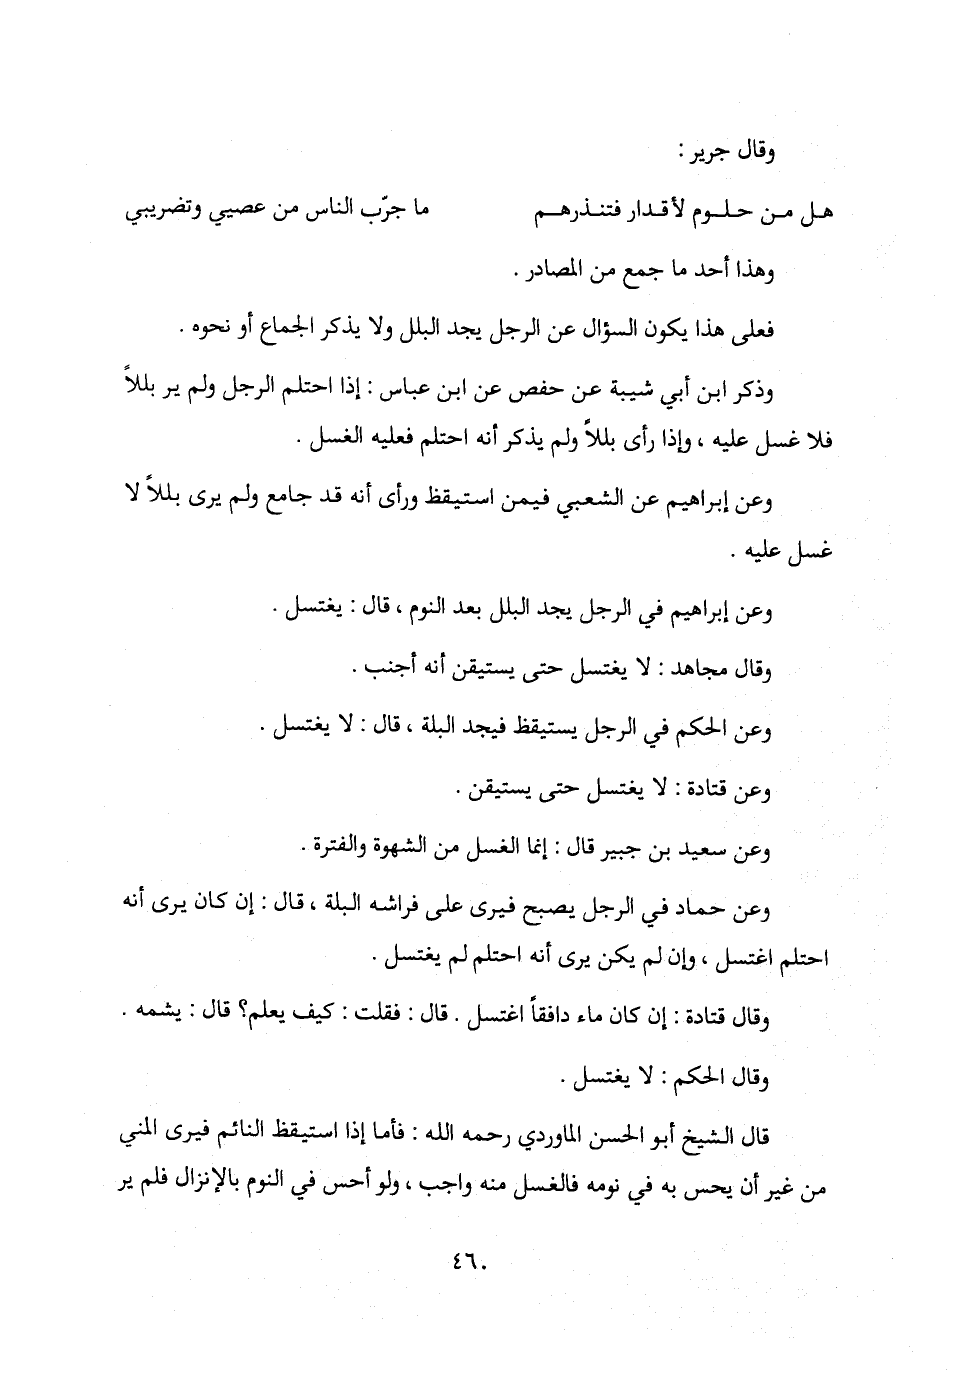 وقال جرير :
هـل مـن حـلـوم لأقـدار فتنـذرهـم ما جرّب الناس من عصيي وتضريبي
وهذا أحد ما جمع من المصادر .
فعلى هذا يكون السؤال عن الرجل يجد البلل ولا يذكر الجماع أو نحوه .
وذكر ابن أبي شيبة عن حفص عن ابن عباس : إذا احتلم الرجل ولم ير بللاً
فلا غسل عليه ، وإذا رأى بللاً ولم يذكر أنه احتلم فعليه الغسل .
وعن إبراهيم عن الشعبي فيمن استيقظ ورأى أنه قد جامع ولم يرى بللاً لا
غسل عليه .
وعن إبراهيم في الرجل يجد البلل بعد النوم ، قال : يغتسل .
وقال مجاهد : لا يغتسل حتى يستيقن أنه أجنب .
وعن الحكم في الرجل يستيقظ فيجد البلة ، قال : لا يغتسل .
وعن قتادة : لا يغتسل حتى يستيقن .
وعن سعيد بن جبير قال : إنما الغسل من الشهوة والفترة .
وعن حماد في الرجل يصبح فيرى على فراشه البلة ، قال : إن كان يرى أنه
احتلم اغتسل ، وإن لم يكن يرى أنه احتلم لم يغتسل .
وقال قتادة : إن كان ماء دافقاً اغتسل . قال : فقلت : كيف يعلم؟ قال : يشمه .
وقال الحكم : لا يغتسل .
قال الشيخ أبو الحسن الماوردي رحمه الله : فأما إذا استيقظ النائم فيرى المني
من غير أن يحس به في نومه فالغسل منه واجب ، ولو أحس في النوم بالإنزال فلم ير
٤٦٠